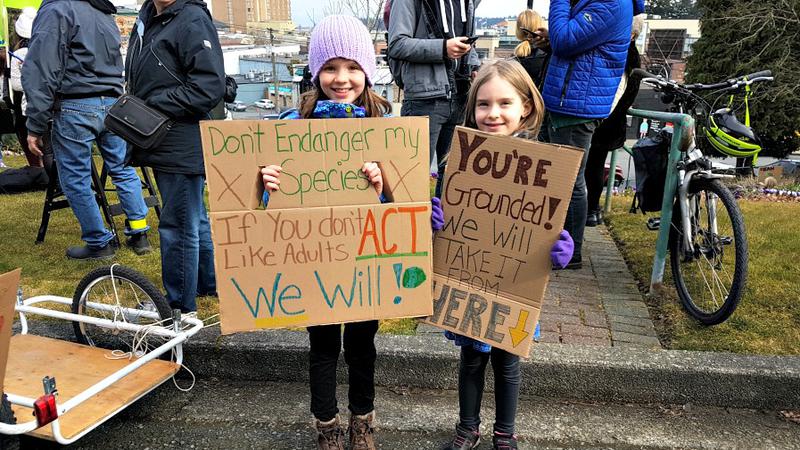 Don't Endanger my
X Species X
If You don't
Like Adults ACT
We Will!
YOU'RE
Grounded!
We Will
TAKE IT
FROM
HERE